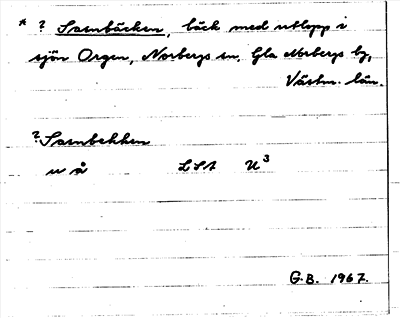 * ? Sarnbäcken, bäck med utlopp i
sjön Orgen, Norbergs sn, Gla Norbergs bg,
Västm. län.
? Sarnbekken
u å LSA U³
G.B. 1967.